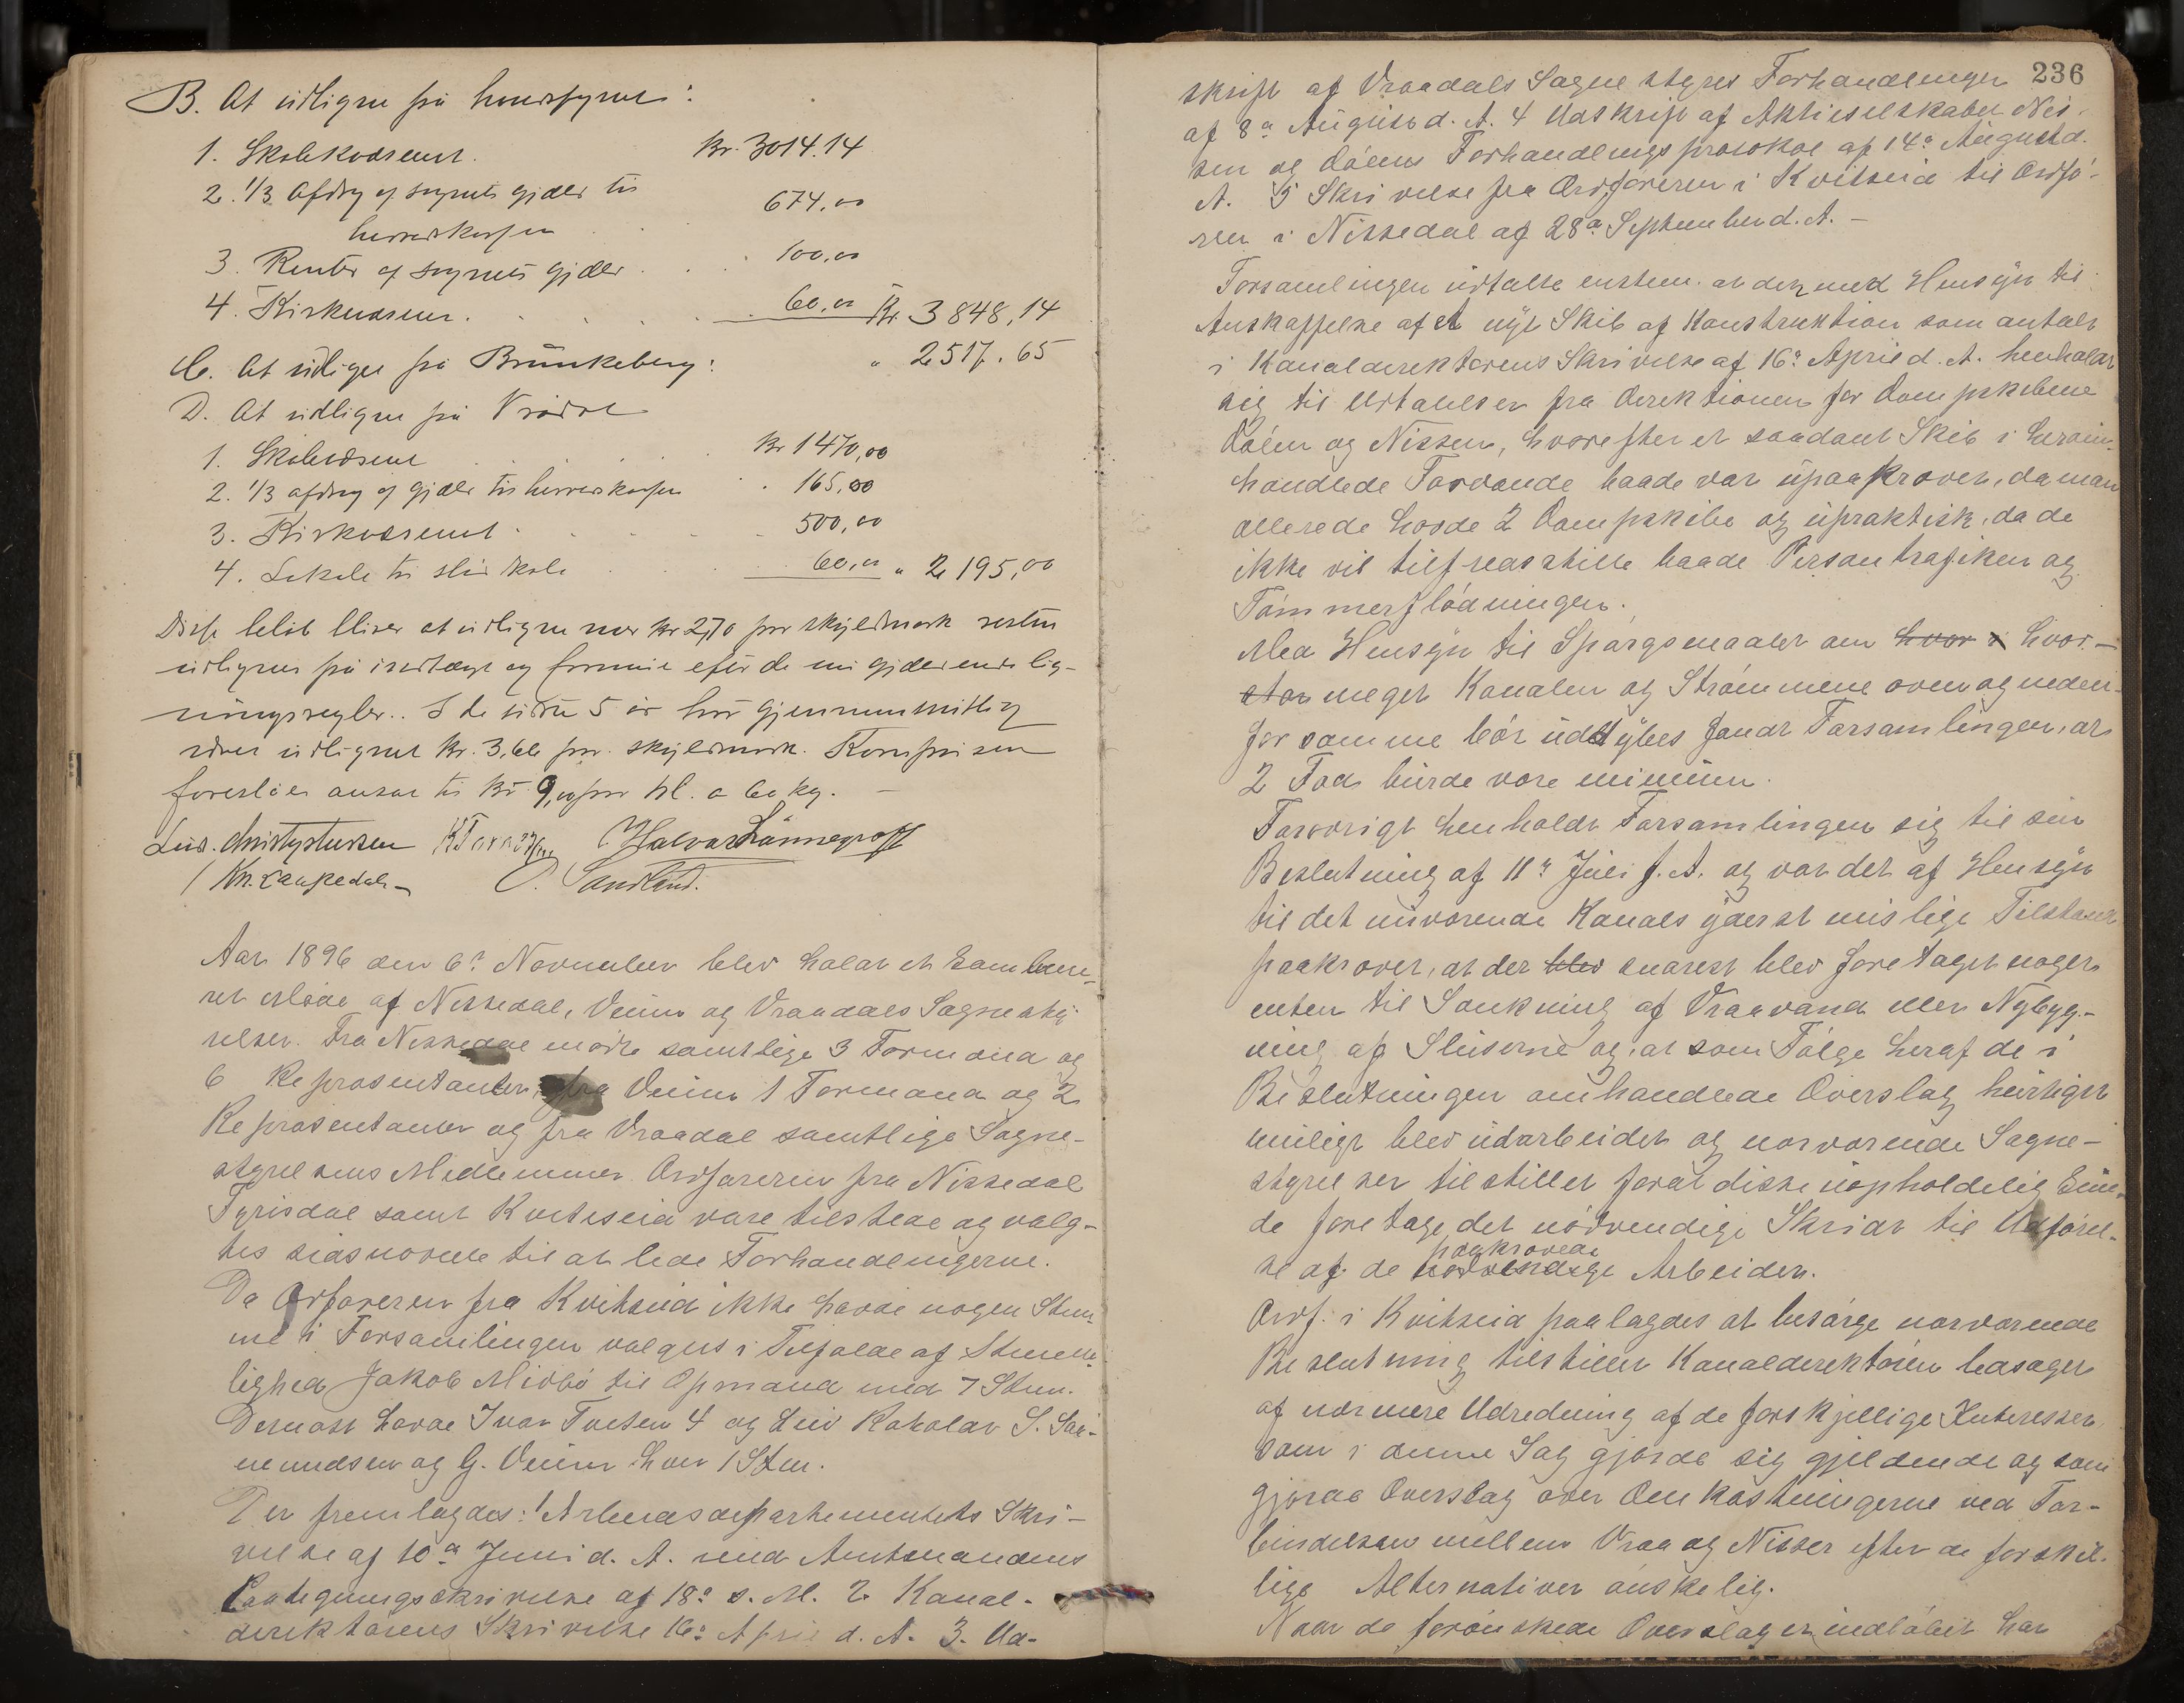 B. At udligne på hovedsognet:
1. Skolekassent. Kr. 3014.14
2. 1/3 Afdrag af sognets gjæld til 674,00
herredskassen
3. Renter af sognets gjæld 100,00
4. Kirkevæsent. 60,00 Kr. 3848,14
C. At udligne på Brunkeberg: " 2517.65
D. At udligne på Vrådal
1. Skolevæsent Kr 1470,00
2. 1/3 afdrag af gjæld til herredskassen 165,00
3. Kirkevæsent 500,00
4. Lokale til skole 60,00 " 2195,00
Disse beløb bliver at udligne med kr 2,70 per skyldmark resten
udlignes på indtægt og formue efter de nu gjældende lig-
ningsregler. I de sidste 5 år har gjennemsnitlig
været udlignet kr. 3,66 per. skyldmark. Kornprisen
foreslåes ansat til kr 9,00 per hl. a 60 kg. —
Halvor
O. Sandland.
Aar 1896 den 6te November blev holdt et sambene-
ret Møde af Nissedal, Veum og Vraadals Sognesty-
relser. Fra Nissedal mødte samtlige 3 Formænd og
6 Repræsentanter, fra Veum 1 Formand og 2
Repræsentanter og fra Vraadal samtlige Sogne-
styrelsens Medlemmer. Ordføreren fra Nissedal
Fyrisdal samt Kviteseid vare tilstede og valg-
tes sidsnævnte til at lede Forhandlingerne.
Da Orføreren fra Kvitseid ikke havde nogen Stem-
me i Forsamlingen valgtes i Tilfælde af Stemme-
lighed Jakob Midbø til Opmand med 7 Stem.
Dernæst havde Ivar Tveten 4 og Leiv Rokolar S. Sae-
mundsen og G. Veum hver 1 Stem.
Der fremlagdes: 1 Arbeidsdepartementets Skri-
velse af 10de Juni d. A. med Amtmandens
Paategningsskrivelse af 18de s. M. 2 Kanal-
direktørens Skrivelse 16de April d. A. 3. Ud-
236
skrift af Vraadals Sognestyres Forhandlinger
af 8de August d. A. 4 Udskrift af Aktieselskabet Nis-
sen og Dølens Forhandlingsprotokol af 14de August d.
A. 5 Skrivelse fra Ordføreren i Kvitseid til Ordfø-
ren i Nissedal af 28de September d. A. —
Forsamlingen udtalte enstem. at den med Hensyn til
Anskaffelse af et nyt Skib af Konstruktion som antalt
i Kanaldirektørens Skrivelse af 16de April d. A. henholdt
sig til Udtalelser fra Direktionen for Dampskibene
Dølen og Nissen, hvorefter et saadant Skib i heroim-
handlede Farvande baade var upaakrævet, da man
allerede havde 2 Dampskibe og upraktisk, da de
ikke vil tilfredsstille baade Persontrafiken og
Tømmerflødningen.
Med Hensyn til Spørgsmaalet om hvor i hvor-
stor meget Kanalen og Strømmene oven og neden-
for samme bør uddybes fandt Forsamlingen, at
2 Fod burde være minimum.
Forøvrigt henholdt Forsamlingen sig til sin
Beslutning af 11te Juli f. A. og var det af Hensyn
til det nuværende Kanals yderst mislige Tilstand
paakrævet, at der blev snarest blev foretaget noget
enten til Sænkning af Vraavand eller Nybyg-
ning af Sluserne og, at som Følge heraf de i
Beslutningen omhandlede Overslag hurtigst
muligt blev udarbeidet og nærværende Sogne-
styrelser tilstillet forat disse uopholdelig kun-
de foretage det nødvendige Skridt til Udførel-
paakrævede
se af de nødvendige Arbeider.
Ordf. i Kvitseid paalagdes at besørge nærværende
Beslutning tilstillet Kanaldirektøren ledsaget
af nærmere Udredning af de forskjellige Interesser
som i denne Sag gjorde sig gjeldende og som
gjorde Overslag over Omkostningerne ved For-
bindelsen mellem Vraa og Nisser efter de forskil-
lige Alternativer ønskelig.
Naar de forønskede Overslag er indløbet har